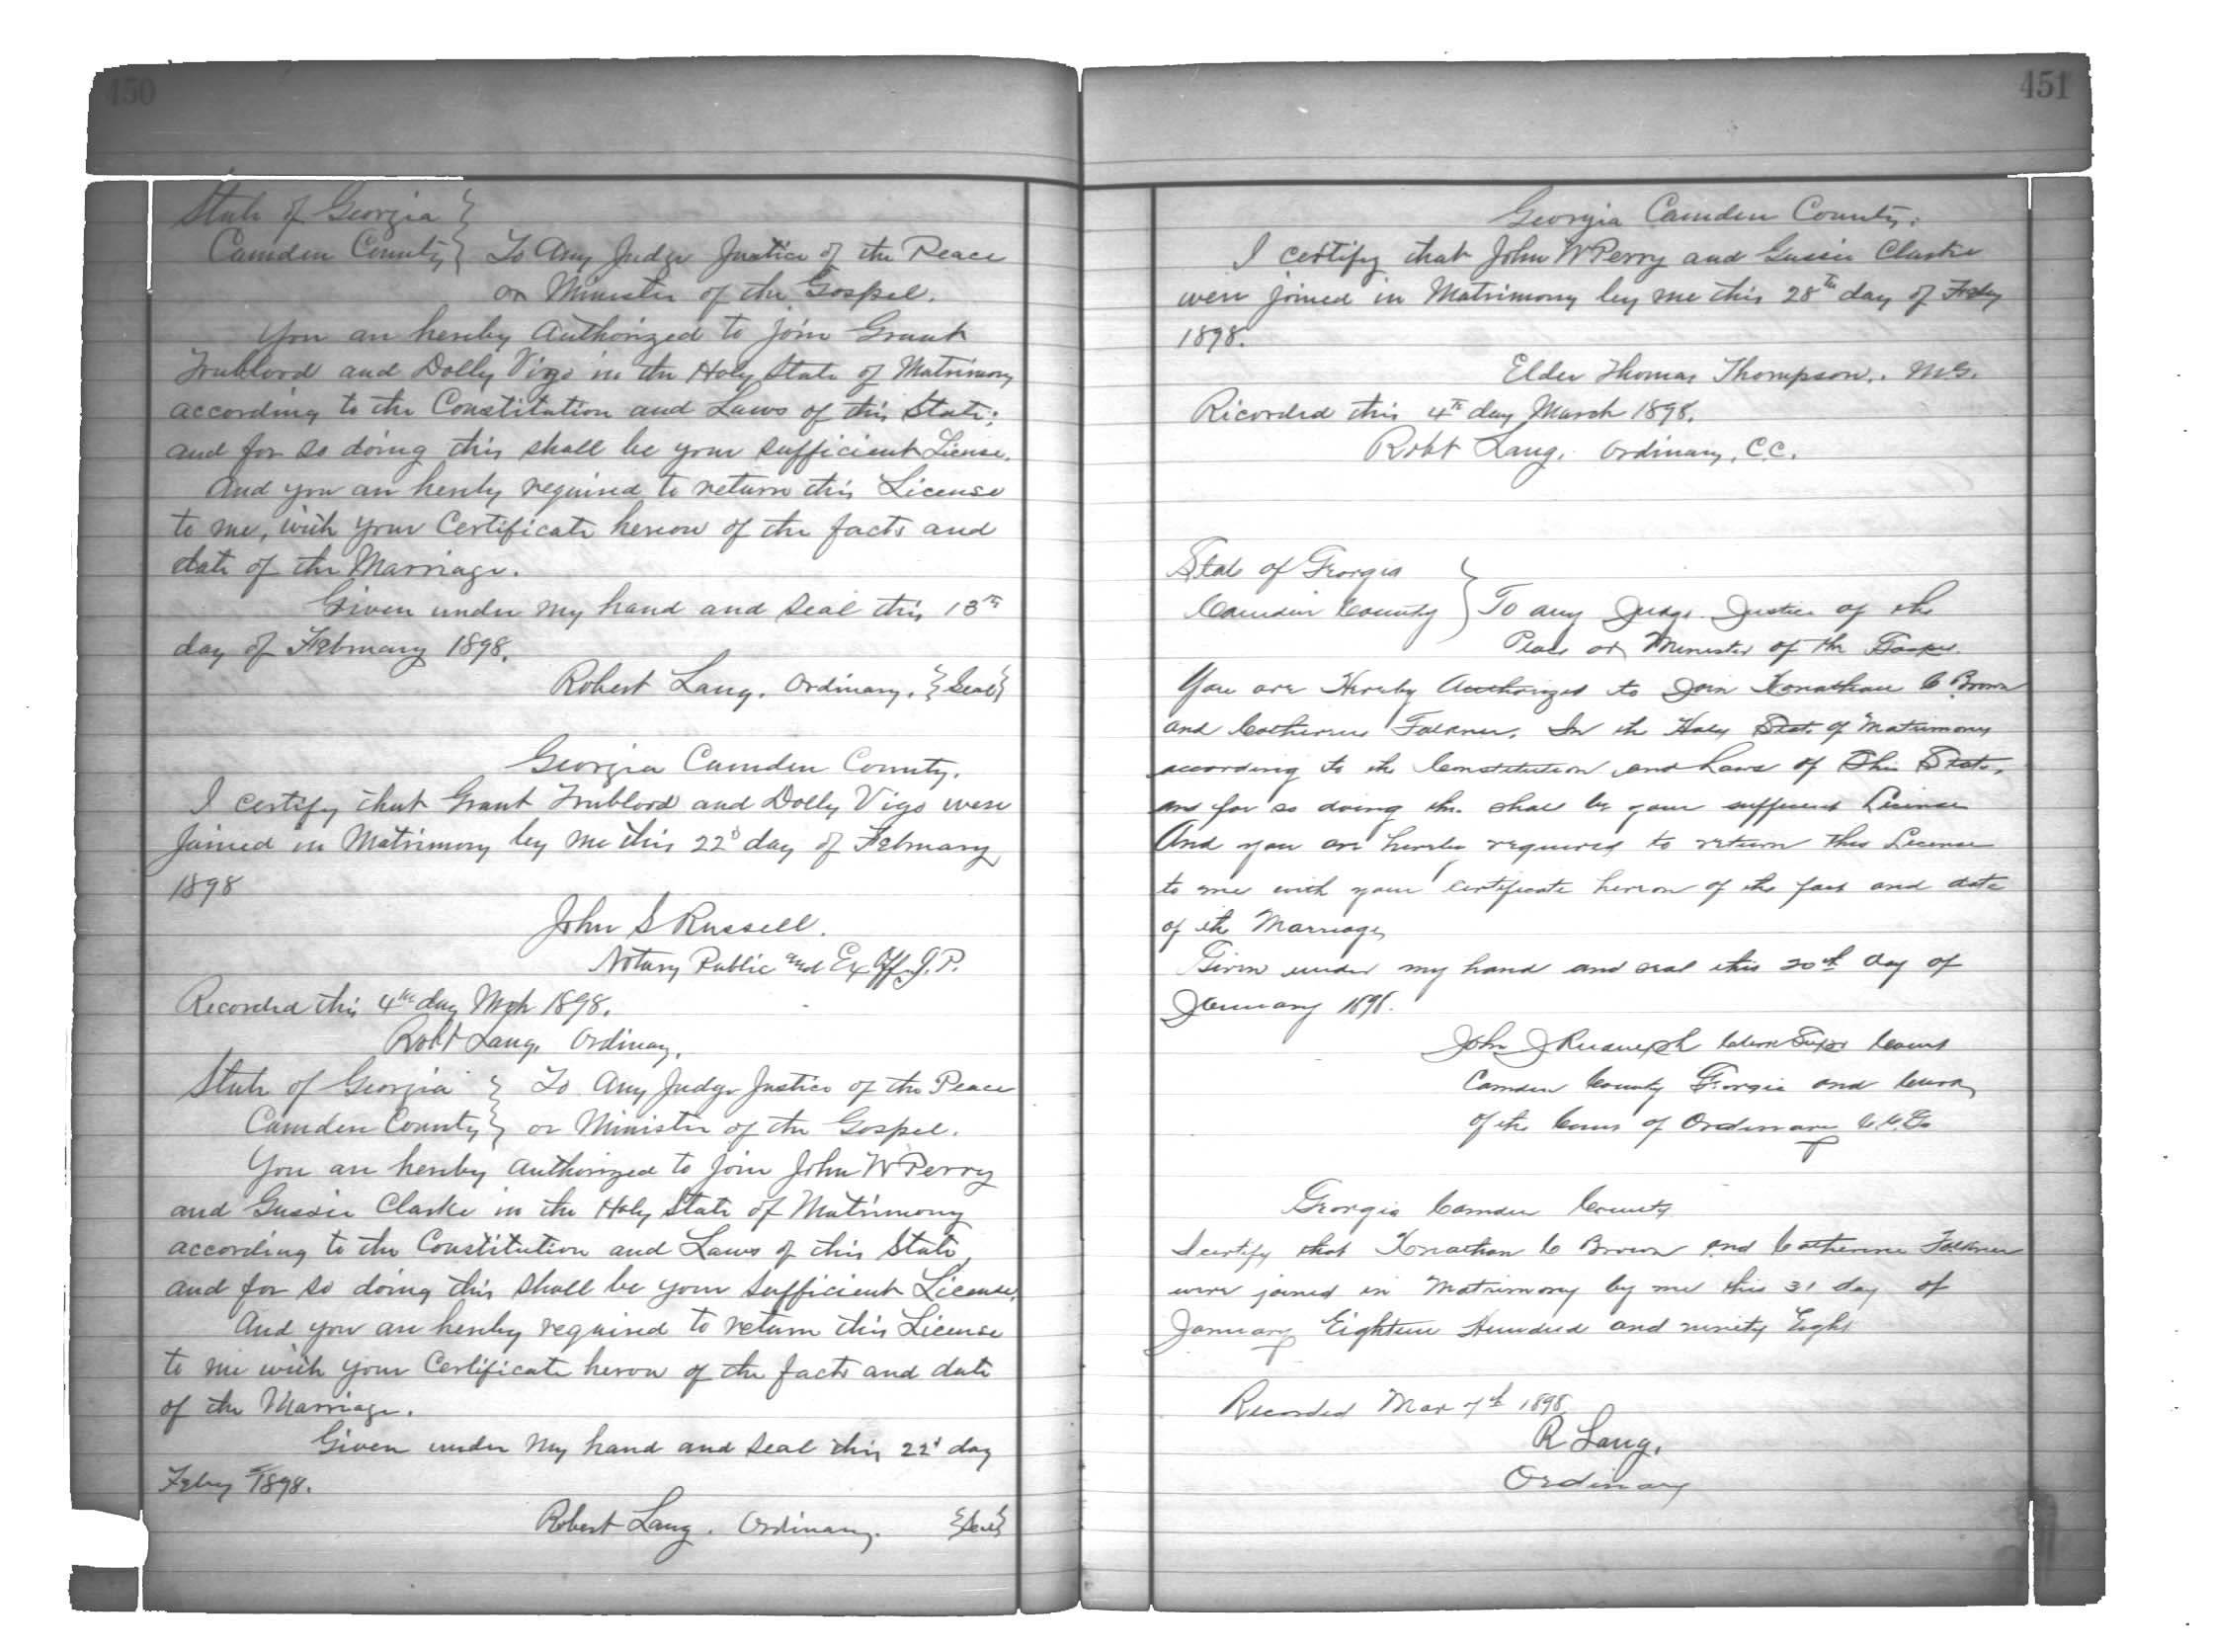 450
State of Georgia }
Camden County } To Any Judge Justice of the Peace
or Minister of the Gospel.
You are hereby Authorized to join Grant
Trublood and Dolly Vigo in the Holy State of Matrimony
according to the Constitution and Laws of this State;
and for so doing this shall be your sufficient License.
And you are hereby required to return this License
to me, with your Certificate hereon of the facts and
date of the Marriage.
Given under my hand and Seal this 13th
day of February 1898.
Robert Lang. Ordinary. {Seal}
Georgia Camden County.
I certify that Grant Trublood and Dolly Vigo were
Joined in Matrimony by me this 22d day of February
1898
John S Russell.
Notary Public and Ex Off. J.P.
Recorded this 4th day Mch 1898.
Robt Lang. Ordinary.
State of Georgia } To Any Judge Justice of the Peace
Camden County } or Minister of the Gospel.
You are hereby authorized to join John W Perry
and Gussie Clarke in the Holy State of Matrimony
according to the Constitution and Laws of this State,
and for so doing this shall be your sufficient License.
And you are hereby required to return this License
to me with your Certificate hereon of the facts and date
of the Marriage.
Given under my hand and seal this 22d day
Feby 1898.
Robert Lang. Ordinary. {Seal}
451
Georgia Camden County.
I certify that John W Perry and Gussie Clarke
were joined in Matrimony by me this 28th day of Feby
1898.
Elder Thomas Thompson. M.G.
Recorded this 4th day March 1898.
Robt Lang. Ordinary, C.C.
State of Georgia }
Camden County } To any Judge Justice of the
Peace or Minister of the Gospel.
You are Hereby Authorized to Join C Brown
and Catherine Falkner. In the Holy State of Matrimony
according to the Constitution and Laws of This State,
and for so doing this shall be your sufficient License
And you are hereby required to return this License
to me with your certificate hereon of the fact and date
of the Marriage,
Given under my hand and seal this 20th day of
January 1898.
John J Rudulph Clerk Supr Court
Camden County Georgia and Clerk
of the Court of Ordinary C.C.Ga
Georgia Camden County
I certify that C Brown and Catherine Falkner
were joined in Matrimony by me this 31 day of
January Eighteen Hundred and ninety Eight
Recorded Mar 7th 1898.
R Lang.
Ordinary